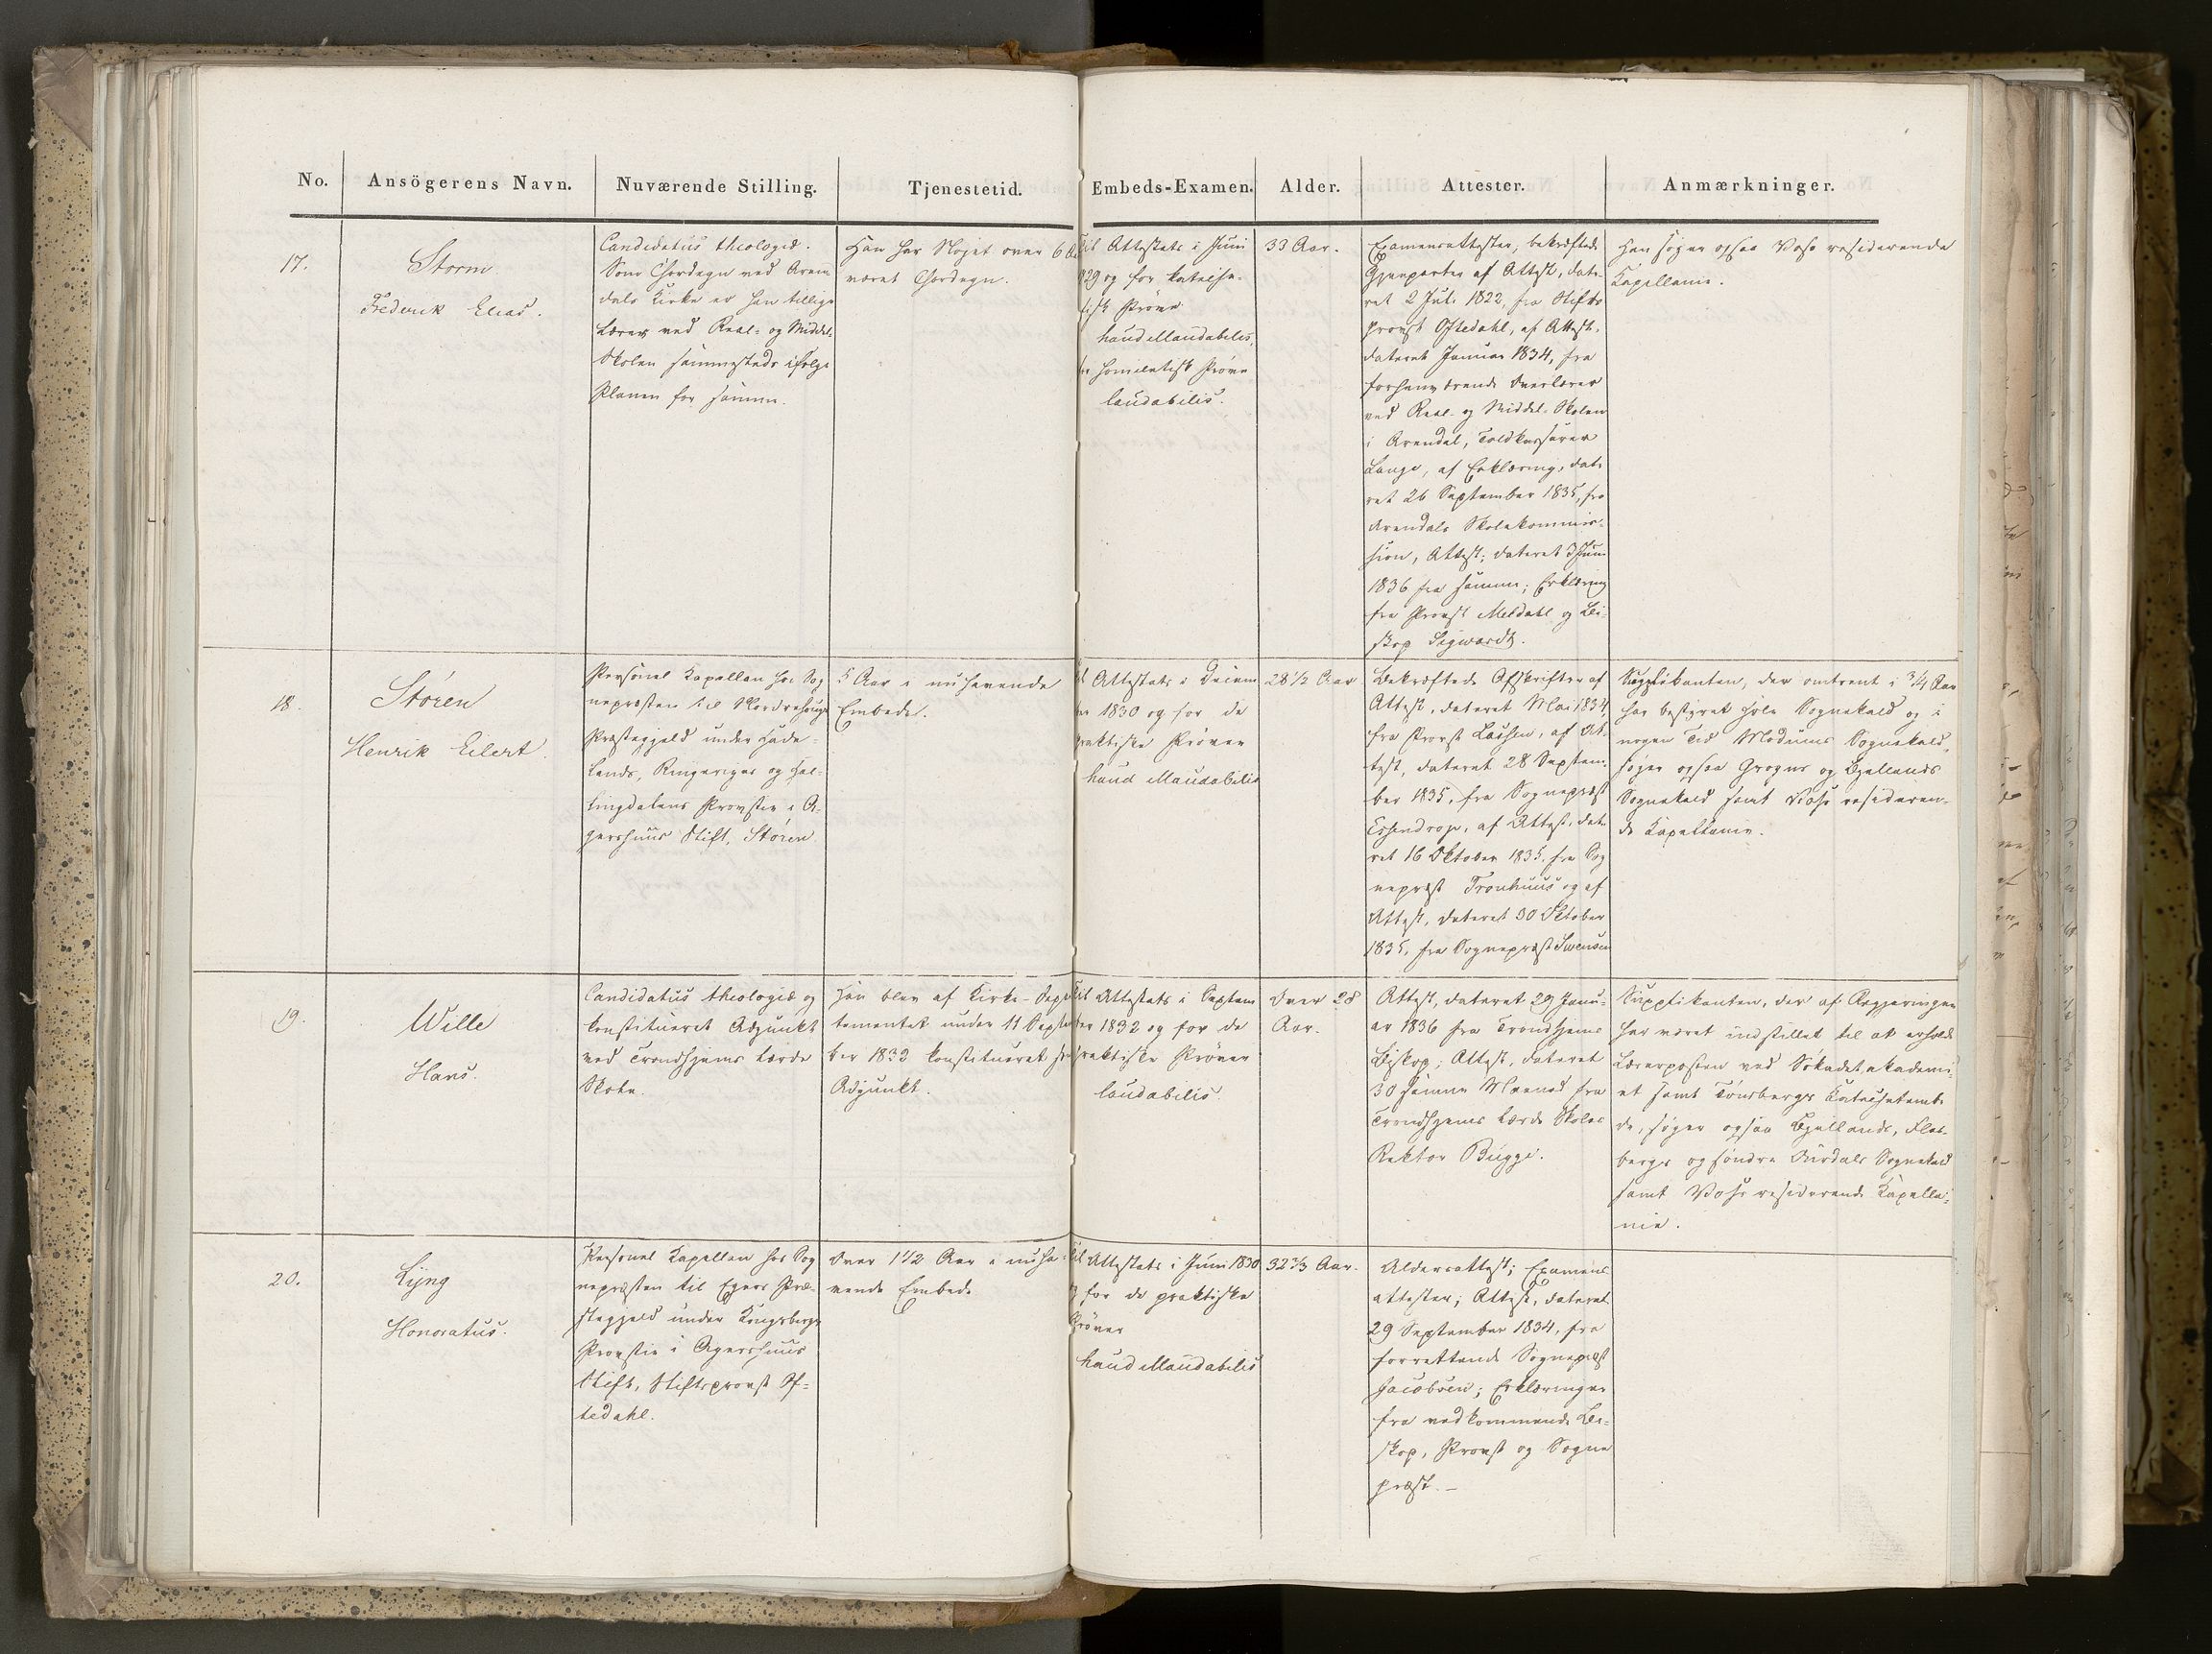 No.
Ansögerens Navn.
Nuværende Stilling.
Tjenestetid.
Embeds-Examen.
Alder.
Attester.
Anmærkninger.
17.
Storm
Frederik Elias.
Candidatus theologiæ.
Som Chordegn ved Aren
dals Kirke er han tillige
Lærer ved Real- og Middel-
Skolen sammesteds ifølge
Planen for samme.
Han har noget over 6
været Chordegn.
til Attestats i Juni
829 og for kateche-
tisk Prøve
haud illaudabilis,
for homiletisk Prøve
laudabilis.
33 Aar.
Examensattester, bekræftede
Gjenparter af Attest, date-
ret 2 Juli 1822, fra Stifts
provst Oftedahl, af Attest,
dateret Januar 1834, fra
forhenværende Overlærer
ved Real- og Middel-Skolen
i Arendal, Toldkasserer
Lange, af Erklæring, date
ret 26 September 1835, fra
Arendals Skolekommis-
sion, Attest, dateret 3 Juni
1836 fra samme; Erklæring
fra Provst Meldahl og Bi-
skop Sigwardt.
Han søger ogsaa Voss residerende
Kapellanie.
18.
Støren
Henrik Eilert.
Personel Kapellan hos Sog
nepræsten til Norderhougs
Præstegjeld under Hade-
lands, Ringeriges og Hal-
lingdalens Provstie i A-
gershuus Stift, Støren
5 Aar i nuhavende
Embede.
til Attestats i Decem
ber 1830 og for de
praktiske Prøver
haud illaudabilis
28 1/2 Aar
Bekræftede Afskrifter af
Attest, dateret Mai 1834,
fra Provst Lassen, af At-
test, dateret 28 Septem-
ber 1835, fra Sognepræst
Essendrop, af Attest, date
ret 16 Oktober 1835, fra Sog
nepræst Tronhuus og af
Attest, dateret 30 Oktober
1835, fra Sognepræst Swensen
Supplikanten, der omtrent i 3/4 Aar
har bestyret Hole Sognekald og i
nogen Tid Modums Sognekald,
søger ogsaa Grogns og Bjellands
Sognekald samt Voss resideren-
de Kapellanie.
19.
Wille
Hans.
Candidatus theologiæ og
konstitueret Adjunkt
ved Trondhjems lærde
Skole.
Han blev af Kirke-Depar
tementet under 11 Septem
ber 1833 konstitueret som
Adjunkt.
til Attestats i Septem
ber 1832 og for de
praktiske Prøver
laudabilis.
Over 28
Aar.
Attest, dateret 29 Janu-
ar 1836 fra Trondhjems
Biskop; Attest, dateret
30 samme Maaned fra
Trondhjems lærde Skoles
Rektor Bugge.
Supplikanten, der af Regjeringen
har været indstillet til at erholde
Lærerposten ved Søkadetakademi-
et samt Tønsbergs Katechetembe
de, søger ogsaa Bjellands, Fles-
bergs og søndre Aurdals Sognekald
samt Voss residerende Kapella-
nie.
20.
Lyng
Honoratus.
Personel Kapellan hos Sog
nepræsten til Egers Præ-
stegjeld under Kongsbergs
Provstie i Agershuus
Stift, Stiftsprovst Of-
tedahl.
Over 1 1/2 Aar i nuha-
vende Embede
til Attestats i Juni 1830
og for de praktiske
Prøver
haud illaudabilis
32 2/3 Aar.
Aldersattest; Examens
attester; Attest, dateret
29 September 1834, fra
forrettende Sognepræst
Jacobsen; Erklæringer
fra vedkommende Bi-
skop, Provst og Sogne
præst.-